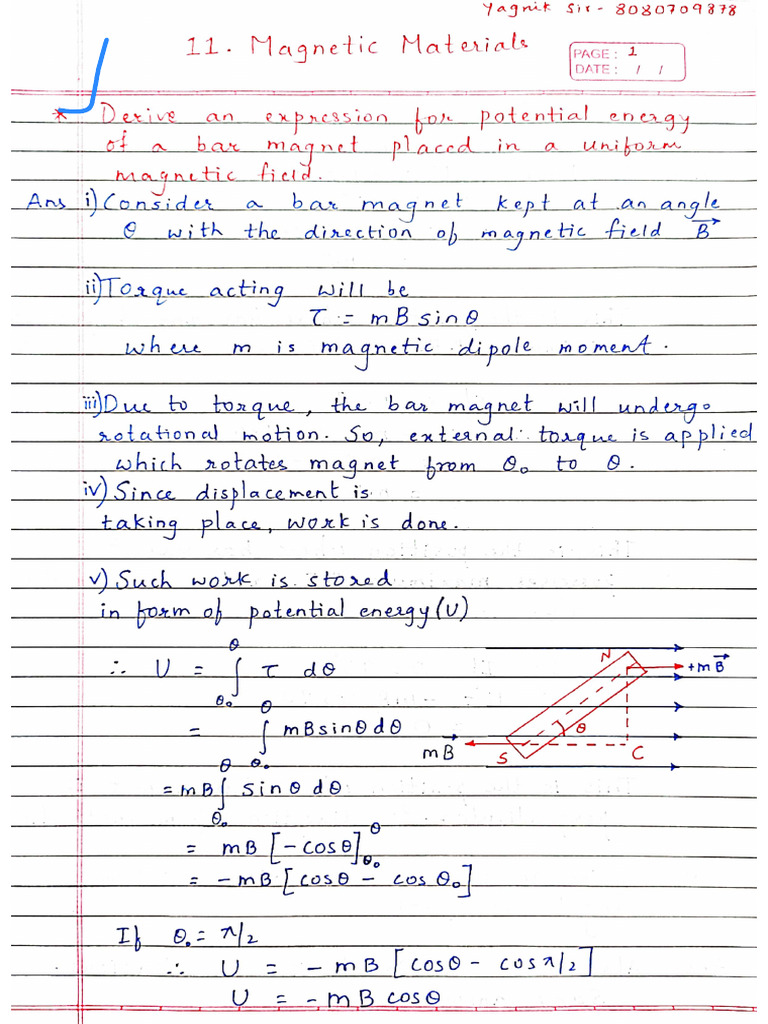 Yagnik Sir - 8080709878
11. Magnetic Materials
PAGE: 1
DATE: / /
* Derive an expression for potential energy
of a bar magnet placed in a uniform
magnetic field.
Ans i) Consider a bar magnet kept at an angle
θ with the direction of magnetic field B⃗
ii) Torque acting will be
τ = mBsinθ
where m is magnetic dipole moment.
iii) Due to torque, the bar magnet will undergo
rotational motion. So, external torque is applied
which rotates magnet from θ₀ to θ.
iv) Since displacement is
taking place, work is done.
v) Such work is stored
in form of potential energy (U)
∴ U = ∫_{θ₀}^{θ} τ dθ
= ∫_{θ₀}^{θ} mBsinθdθ
= mB ∫_{θ₀}^{θ} sinθdθ
= mB [-cosθ]_{θ₀}^{θ}
= -mB [cosθ - cosθ₀]
N
+mB⃗
θ
mB⃗
S
C
If θ₀ = π/2
∴ U = -mB [cosθ - cosπ/2]
U = -mBcosθ